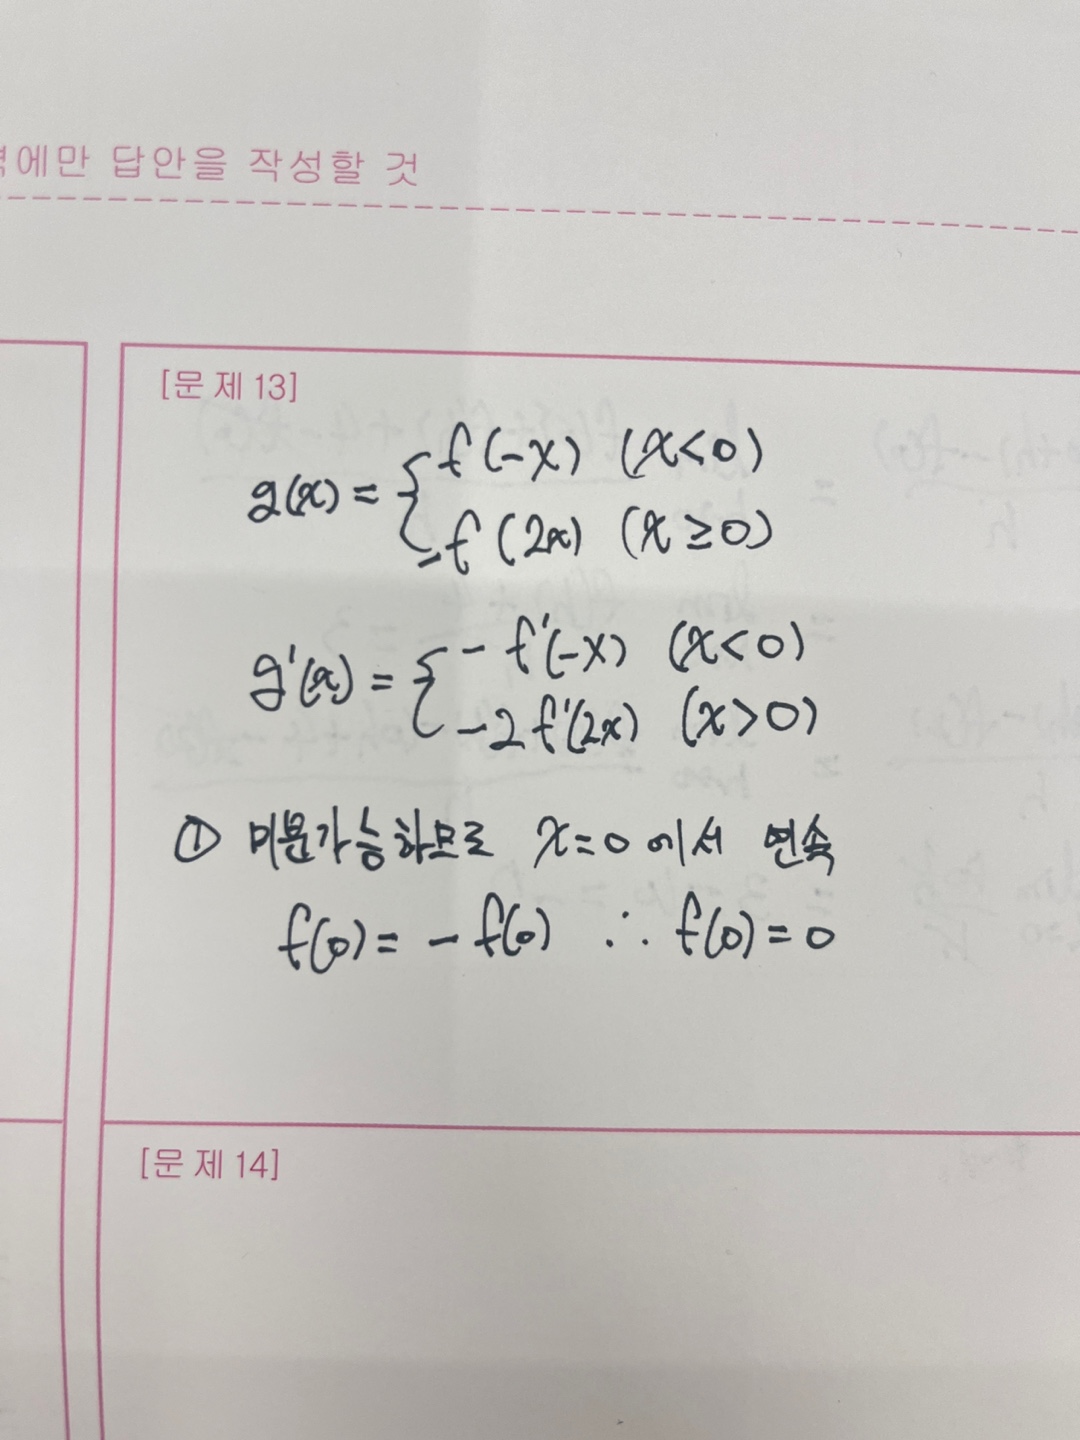 역에만 답안을 작성할 것
[문 제 13]
g(x) = { f(-x) (x<0)
-f(2x) (x≥0)
g'(x) = { -f'(-x) (x<0)
-2f'(2x) (x>0)
① 미분가능하므로 x=0에서 연속
f(0) = -f(0) ∴ f(0) = 0
[문 제 14]